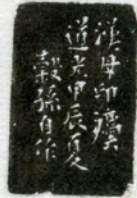 漢母印
道光甲辰夏
穀孫自作